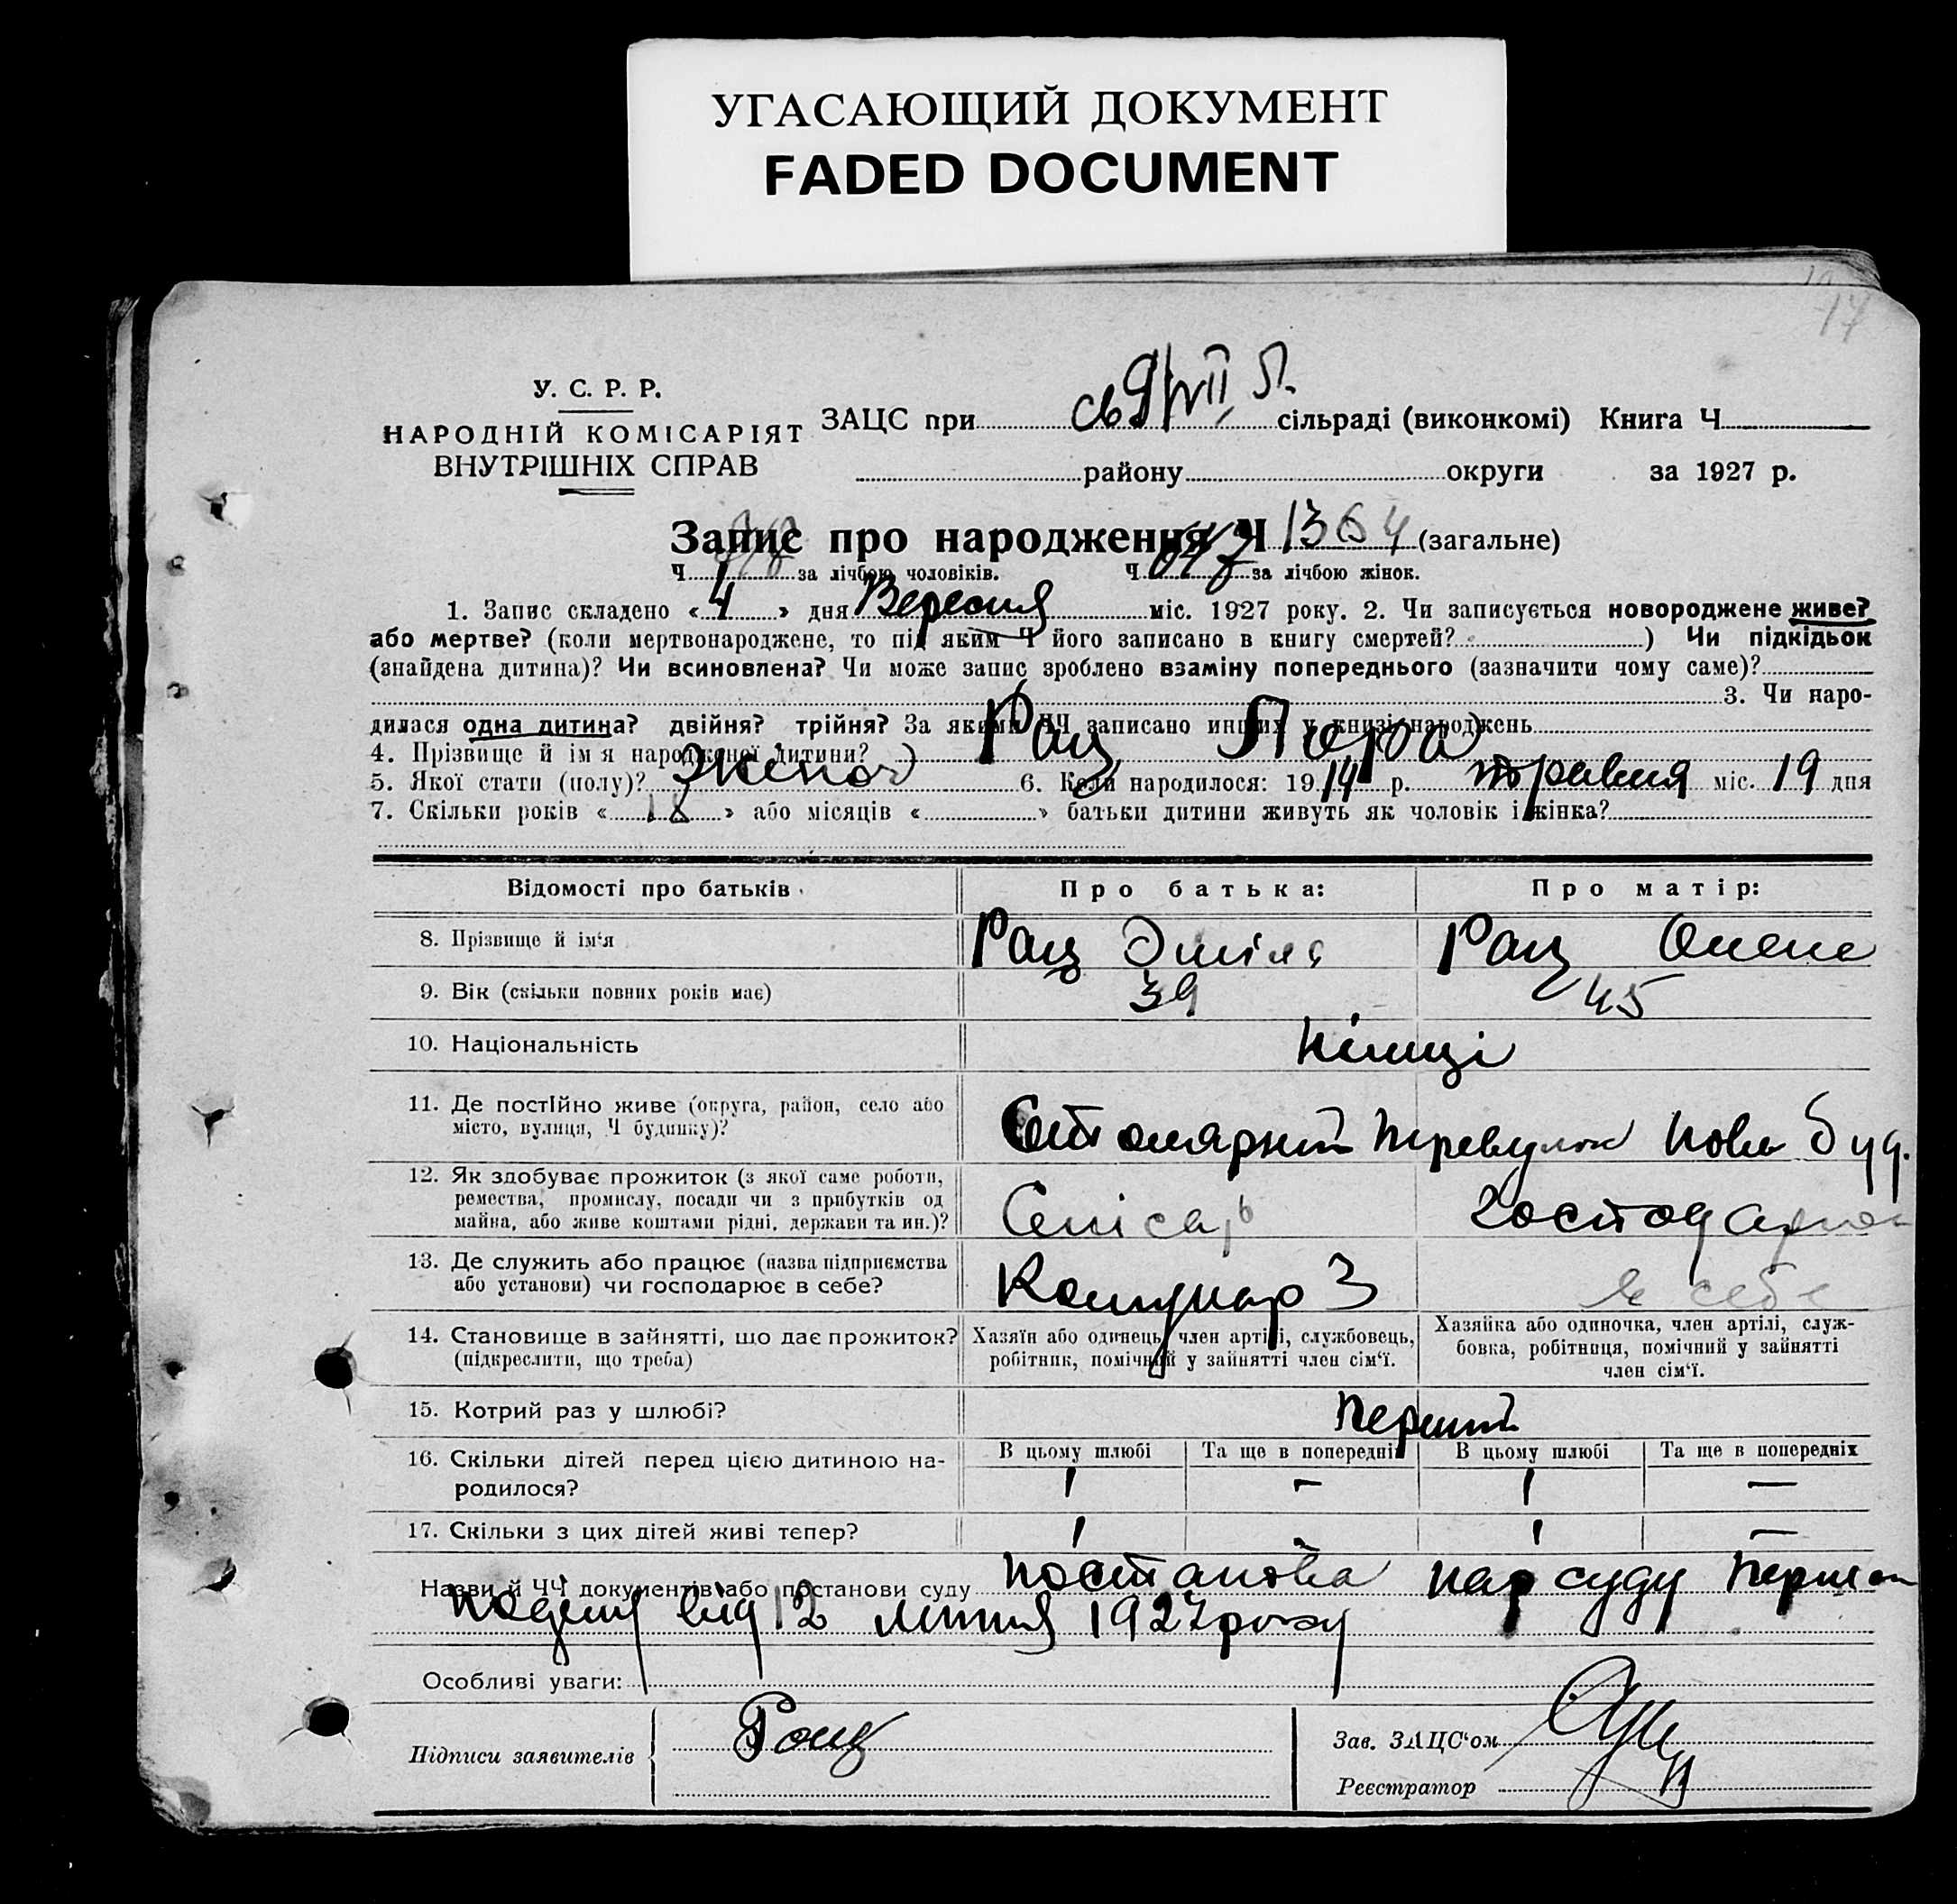 УГАСАЮЩИЙ ДОКУМЕНТ
FADED DOCUMENT
17
У. С. Р. Р.
НАРОДНІЙ КОМІСАРІЯТ
ВНУТРІШНІХ СПРАВ
ЗАЦС при сільраді (виконкомі) Книга Ч
району округи за 1927 р.
Запис про народження Ч 1364 (загальне)
Ч за лічбою чоловіків. Ч 647 за лічбою жінок.
1. Запис складено « 4 » дня Вересня міс. 1927 року. 2. Чи записується новороджене живе?
або мертве? (коли мертвонароджене, то під яким Ч його записано в книгу смертей? ) Чи підкідьок
(знайдена дитина)? Чи всиновлена? Чи може запис зроблено взаміну попереднього (зазначити чому саме)?
3. Чи наро-
дилася одна дитина? двійня? трійня? За якими ЧЧ записано инших у книзі народжень
4. Прізвище й ім'я народженої дитини? Рац
5. Якої стати (полу)? Жіноч 6. Коли народилося: 1914 р. травня міс. 19 дня
7. Скільки років « 18 » або місяців « » батьки дитини живуть як чоловік і жінка?
Відомості про батьків Про батька: Про матір:
8. Прізвище й ім'я Рац Рац
9. Вік (скільки повних років має) 39 45
10. Національність Німці
11. Де постійно живе (округа, район, село або
місто, вулиця, Ч будинку)? перевулок нов. буд.
12. Як здобуває прожиток (з якої саме роботи,
ремества, промислу, посади чи з прибутків од
майна, або живе коштами рідні, держави та ин.)? Слісарь
13. Де служить або працює (назва підприємства
або установи) чи господарює в себе? Комунар 3 в себе
14. Становище в зайнятті, що дає прожиток?
(підкреслити, що треба)
Хазяїн або одинець, член артілі, службовець,
робітник, помічний у зайнятті член сім'ї.
Хазяйка або одиночка, член артілі, служ-
бовка, робітниця, помічний у зайнятті
член сім'ї.
15. Котрий раз у шлюбі? Перший
В цьому шлюбі Та ще в попередніх В цьому шлюбі Та ще в попередніх
16. Скільки дітей перед цією дитиною на-
родилося? 1 – 1 –
17. Скільки з цих дітей живі тепер? 1 - 1 –
Назви й ЧЧ документів або постанови суду постанова нар суду
від 12 липня 1927 року
Особливі уваги:
Підписи заявителів Рац
Зав. ЗАЦС'ом
Реєстратор